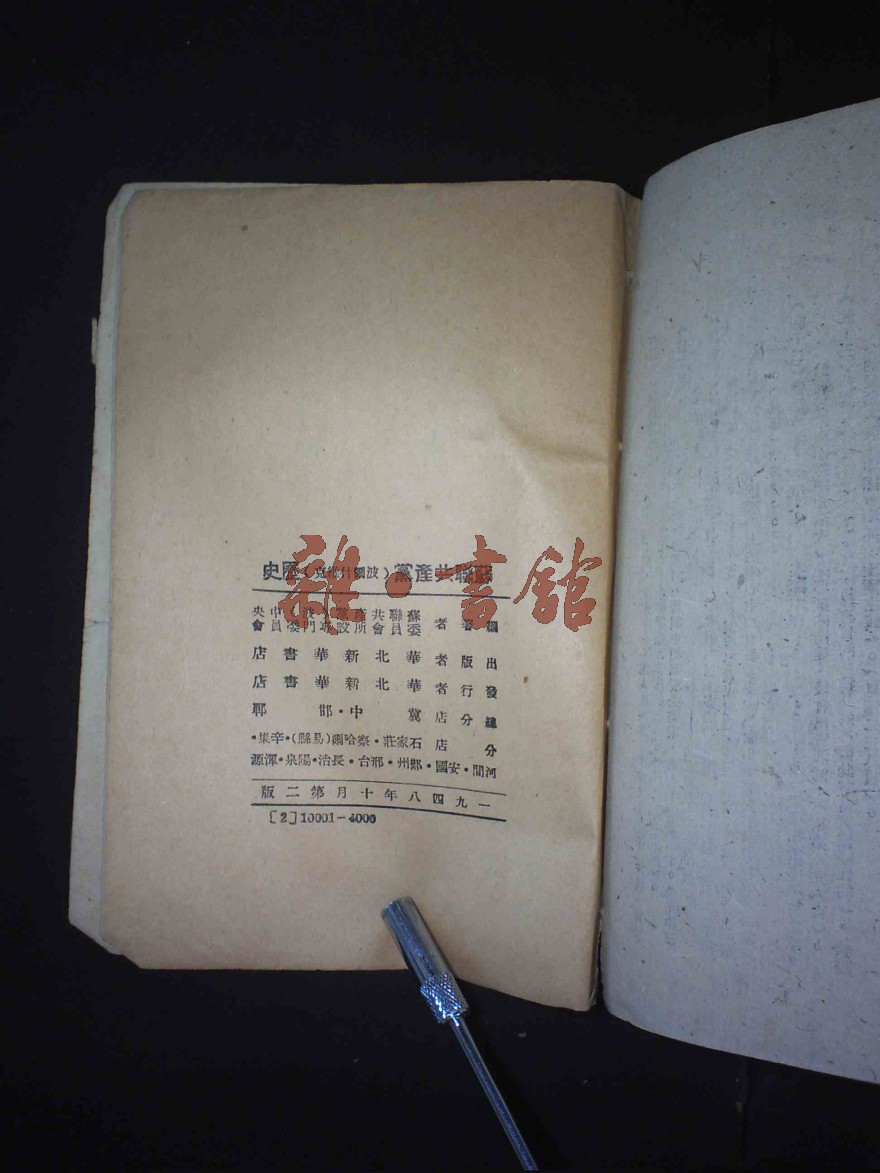 蘇聯共產黨(波爾什維克)歷史
編著者 蘇聯共產黨(波)中央
委員會所設專門委員會
出版者 華北新華書店
發行者 華北新華書店
總分店 冀中·邯鄲
分店 石家莊·察哈爾(易縣)·辛集·
河間·安國·鄚州·邢台·長治·陽泉·渾源
一九四八年十月第二版
[2]10001-4000
雜·書館